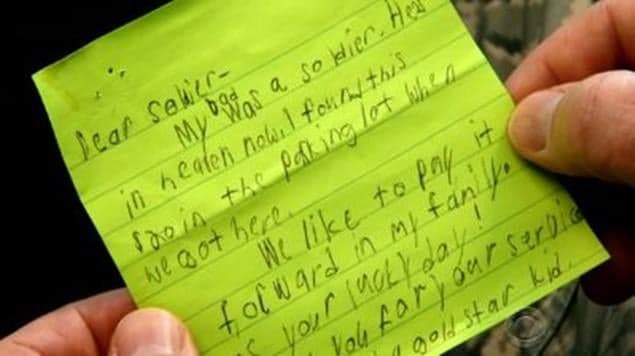 Dear soldier-
My dad was a soldier. Hes
in heaven now. I found this
$20 in the parking lot when
we got here.
We like to pay it
forward in my family.
your lucky day!
you for your service
a gold star kid.